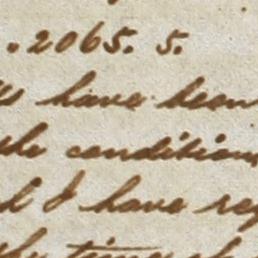 .2065. 5.
have been
the conditions
I have
the time